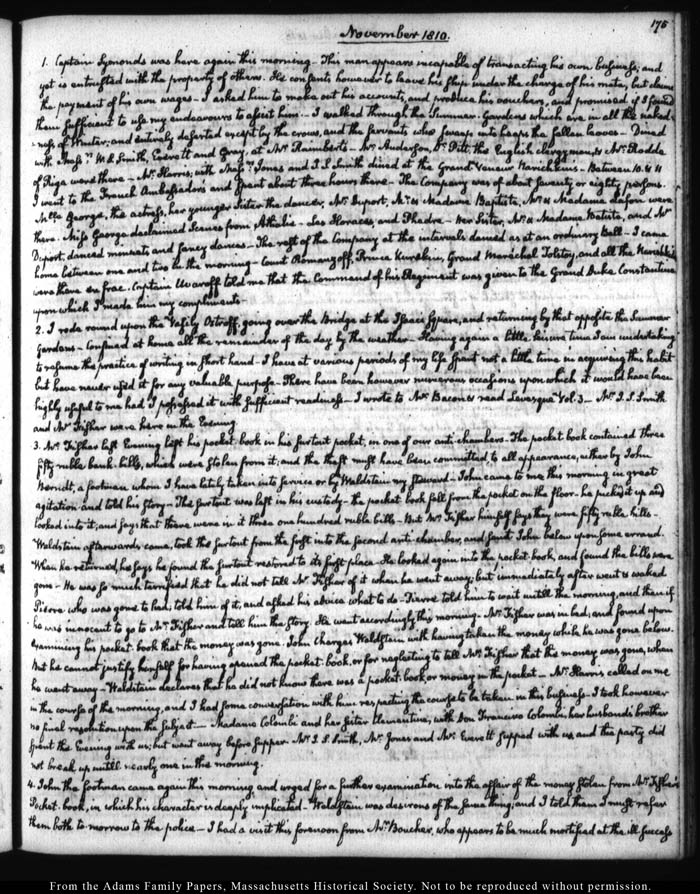 175
November 1810.
1. Captain Symonds was here again this morning — This man appears incapable of transacting his own business; and
yet is entrusted with the property of others. He consents however to leave his ship under the charge of his mate, but claims
the payment of his own wages — I asked him to make out his accounts, and produce his vouchers, and promised if I found
them sufficient to use my endeavours to assist him. — I walked through the Summer-Gardens which are in all the naked-
ness of Winter; and entirely deserted except by the crows, and the servants who sweep into heaps the fallen leaves — Dined
with Mess.rs W. R. Smith, Everett and Gray, at Mr Raimbert's — Mr Anderson, Dr. Pitt, the English clergyman, & Mr Rodde
of Riga were there — Mr Harris, with Mess.rs Jones and J. S. Smith dined at the Grand Veneur Narishkin's — Between 10 & 11
I went to the French Ambassador's and spent about three hours there — The Company was of about seventy or eighty persons.
Mlle George, the actress, her younger Sister the dancer, Mr Duport, Mr & Madame Baptiste, Mr & Madame Lafon were
there — Miss George declaimed scenes from Athalie — Les Horaces, and Phedre — Her Sister, Mr & Madame Batista, and Mr
Duport, danced menuets and fancy dances — The rest of the Company at the intervals danced as at an ordinary Ball — I came
home between one and two in the morning — Count Romanzoff, Prince Kurakin, Grand Maréchal Tolstoy, and all the Narishkins
were there en frac. Captain Uwaroff told me that the Command of his Regiment was given to the Grand Duke Constantine
upon which I made him my compliments —
2. I rode round upon the Vasily Ostroff, going over the Bridge at the Isaac Square, and returning by that opposite the Summer
Gardens — Confined at home all the remainder of the day by the weather — Having again a little leisure time I am undertaking
to resume the practice of writing in short hand — I have at various periods of my life spent not a little time in acquiring this habit
but have never used it for any valuable purpose — There have been however numerous occasions upon which it would have been
highly useful to me had I possessed it with sufficient readiness — I wrote to Mr Bacon & read Levesque Vol. 3 — Mr J. S. Smith
and Mr Fisher were here in the Evening
3. Mr Fisher last Evening left his pocket book in his surtout pocket, in one of our anti-chambers. The pocket book contained three
fifty ruble bank-bills, which were stolen from it; and the theft must have been committed, to all appearance, either by John
, a footman whom I have lately taken into service or by Waldstein my steward — John came to me this morning in great
agitation and told his story — The surtout was left in his custody — the pocket book fell from the pocket on the floor — he picked it up and
looked into it, and says that there were in it three one hundred ruble bills — But Mr Fisher himself says they were fifty ruble bills —
Waldstein afterwards came, took the surtout from the first into the second anti-chamber, and sent John below upon some errand.
When he returned, he says he found the surtout restored to its first place — He looked again into the pocket-book, and found the bills were
gone — He was so much terrified that he did not tell Mr Fisher of it when he went away; but immediately after went & waked
Pierre who was gone to bed; told him of it, and asked his advice what to do — Pierre told him to wait untill the morning, and then if
he was innocent to go to Mr Fisher and tell him the story. He went accordingly this morning. Mr Fisher was in bed; and found upon
examining his pocket book that the money was gone. John charges Waldstein with having taken the money while he was gone below.
But he cannot justify himself for having opened the pocket-book, or for neglecting to tell Mr Fisher that the money was gone, when
he went away — Waldstein declares that he did not know there was a pocket-book or money in the pocket — Mr Harris called on me
in the course of the morning, and I had some conversation with him respecting the course to be taken in this business — I took however
no final resolution upon the subject — Madame Colombi and her sister Clementina, with Don Francisco Colombi, her husband's brother
spent the Evening with us; but went away before supper. Mr J. S. Smith, Mr Jones and Mr Everett supped with us, and the party did
not break up untill nearly one in the morning.
4. John the footman came again this morning and urged for a further examination into the affair of the money stolen from Mr Fisher's
Pocket-book, in which his character is deeply implicated — Waldstein was desirous of the same thing; and I told them I must refer
them both to-morrow to the police — I had a visit this forenoon from Mr Boucher, who appears to be much mortified at the ill success
From the Adams Family Papers, Massachusetts Historical Society. Not to be reproduced without permission.